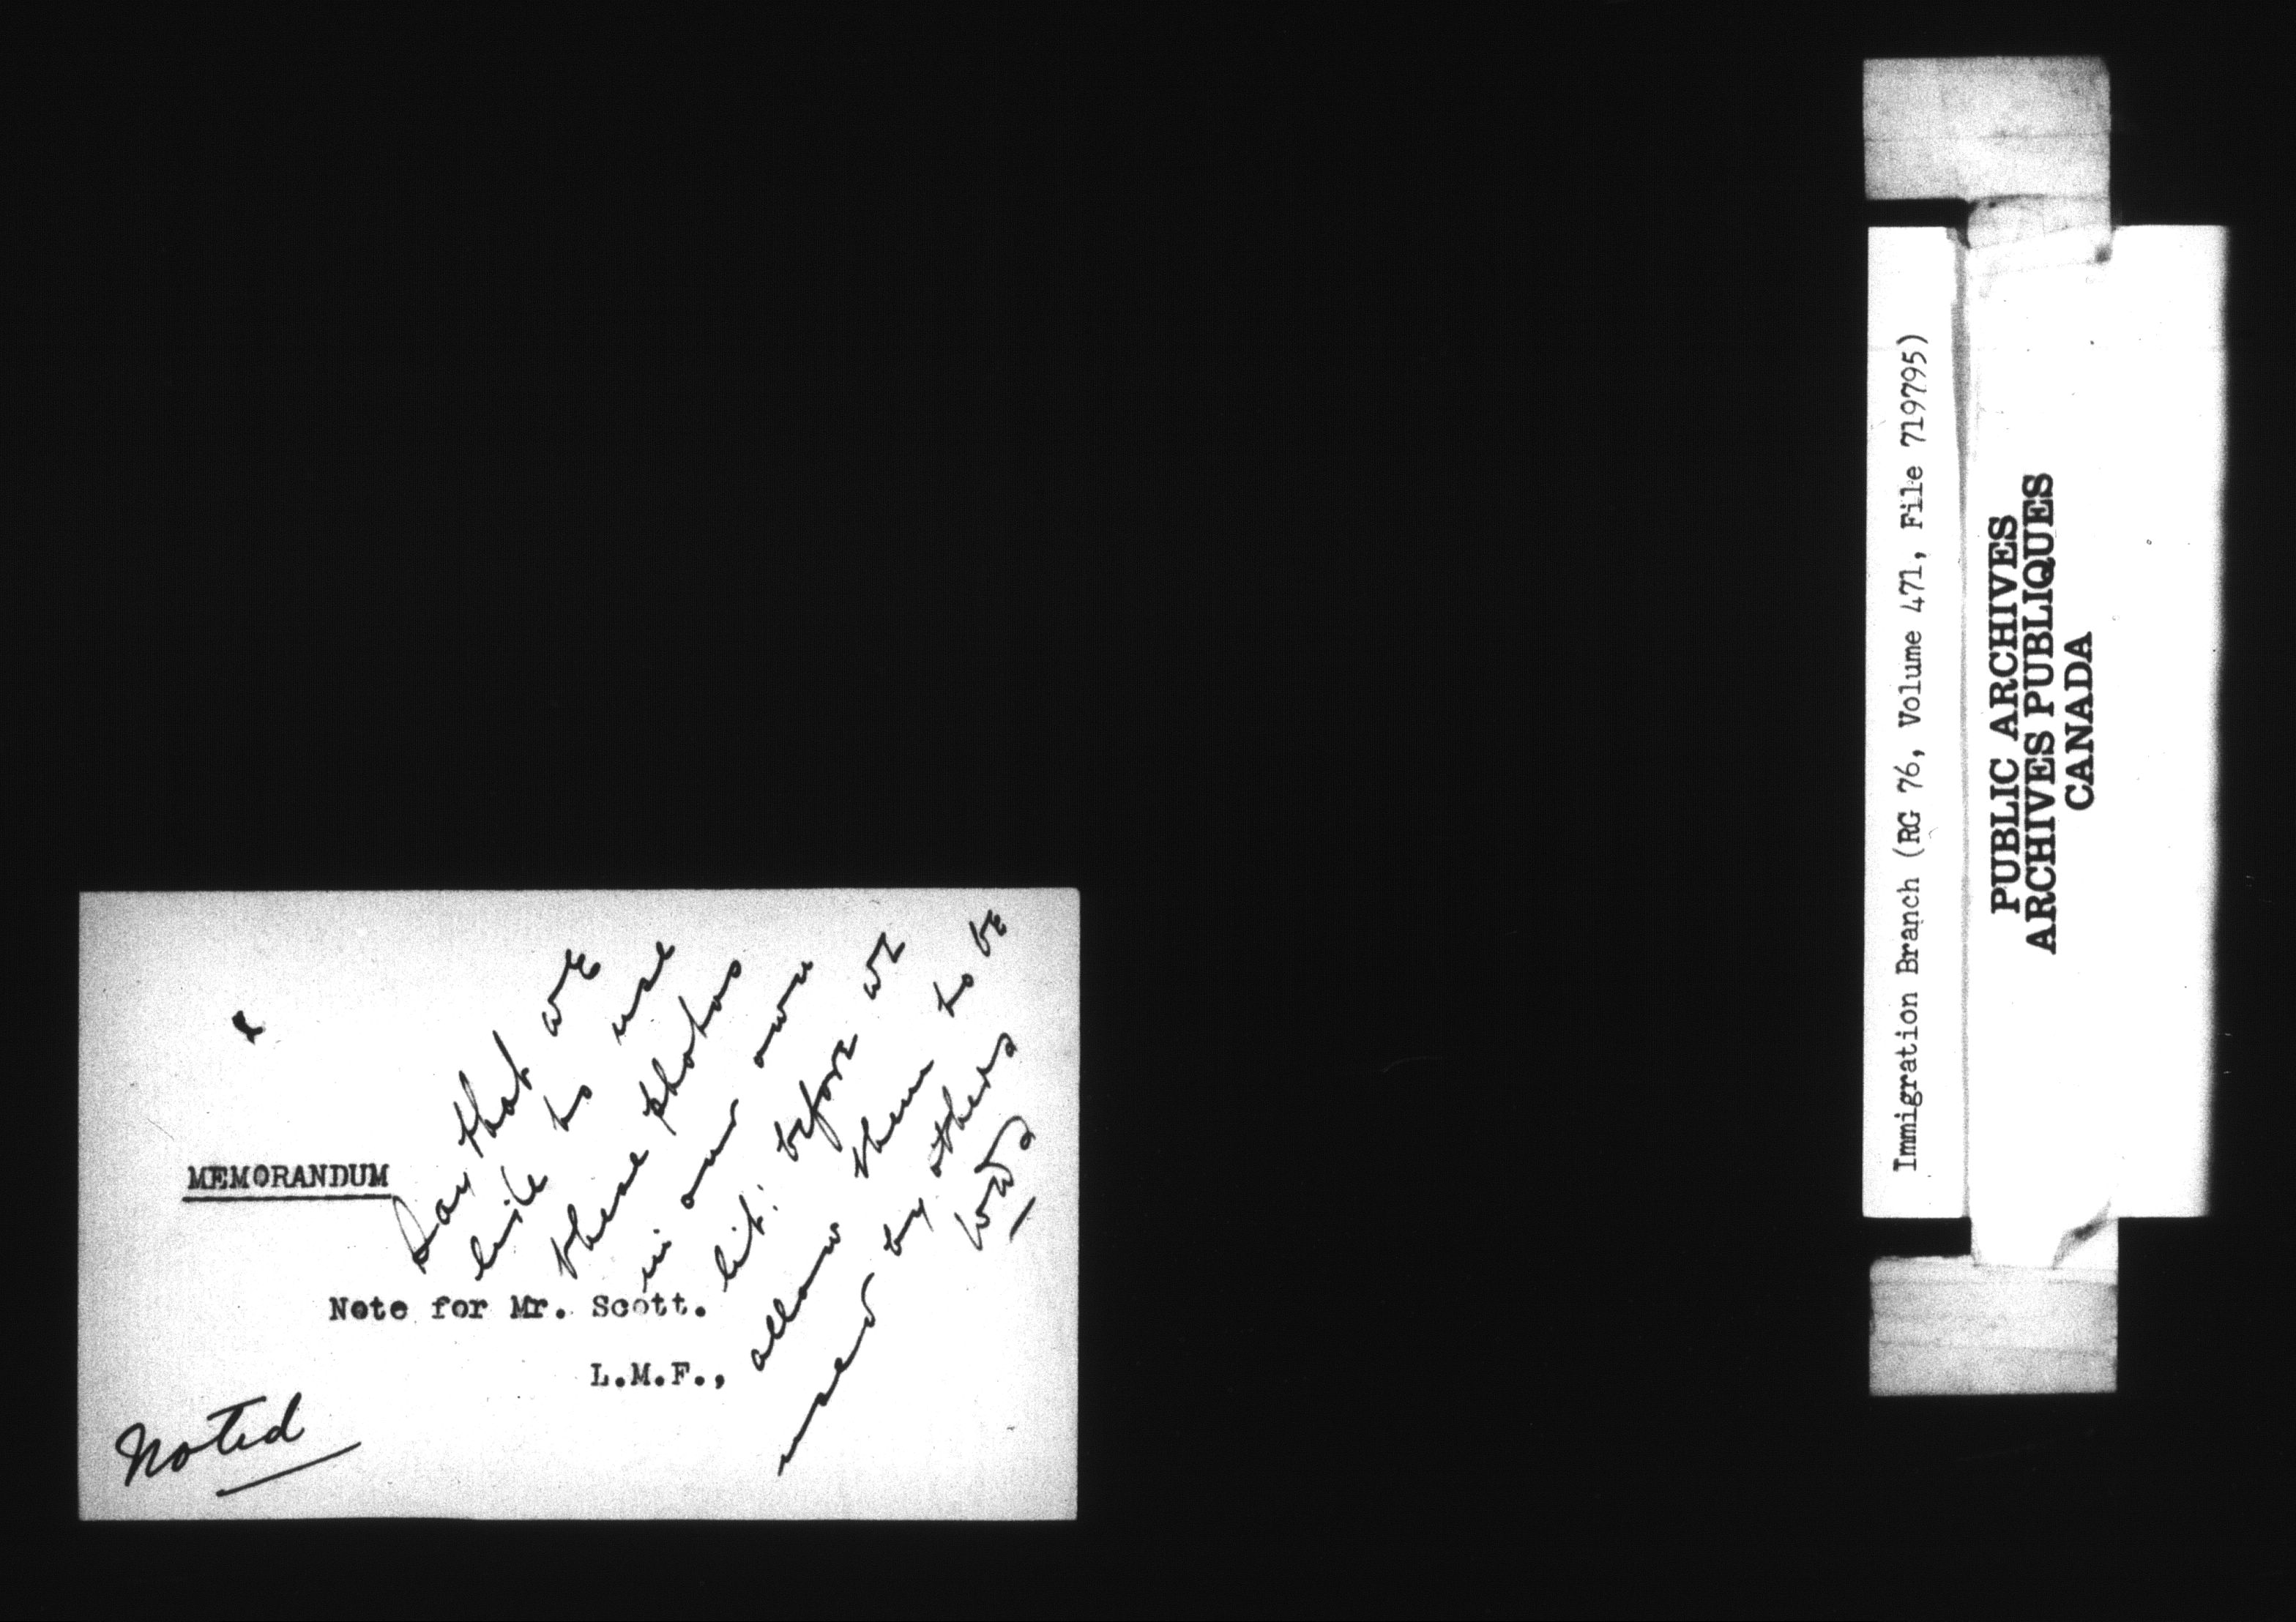 MEMORANDUM
Note for Mr. Scott.
L.M.F.,
Say that we
like to use
these photos
in our own
lit: before we
allow them to be
used by others
WDS
Noted
Immigration Branch (RG 76, Volume 471, File 719795)
PUBLIC ARCHIVES
ARCHIVES PUBLIQUES
CANADA